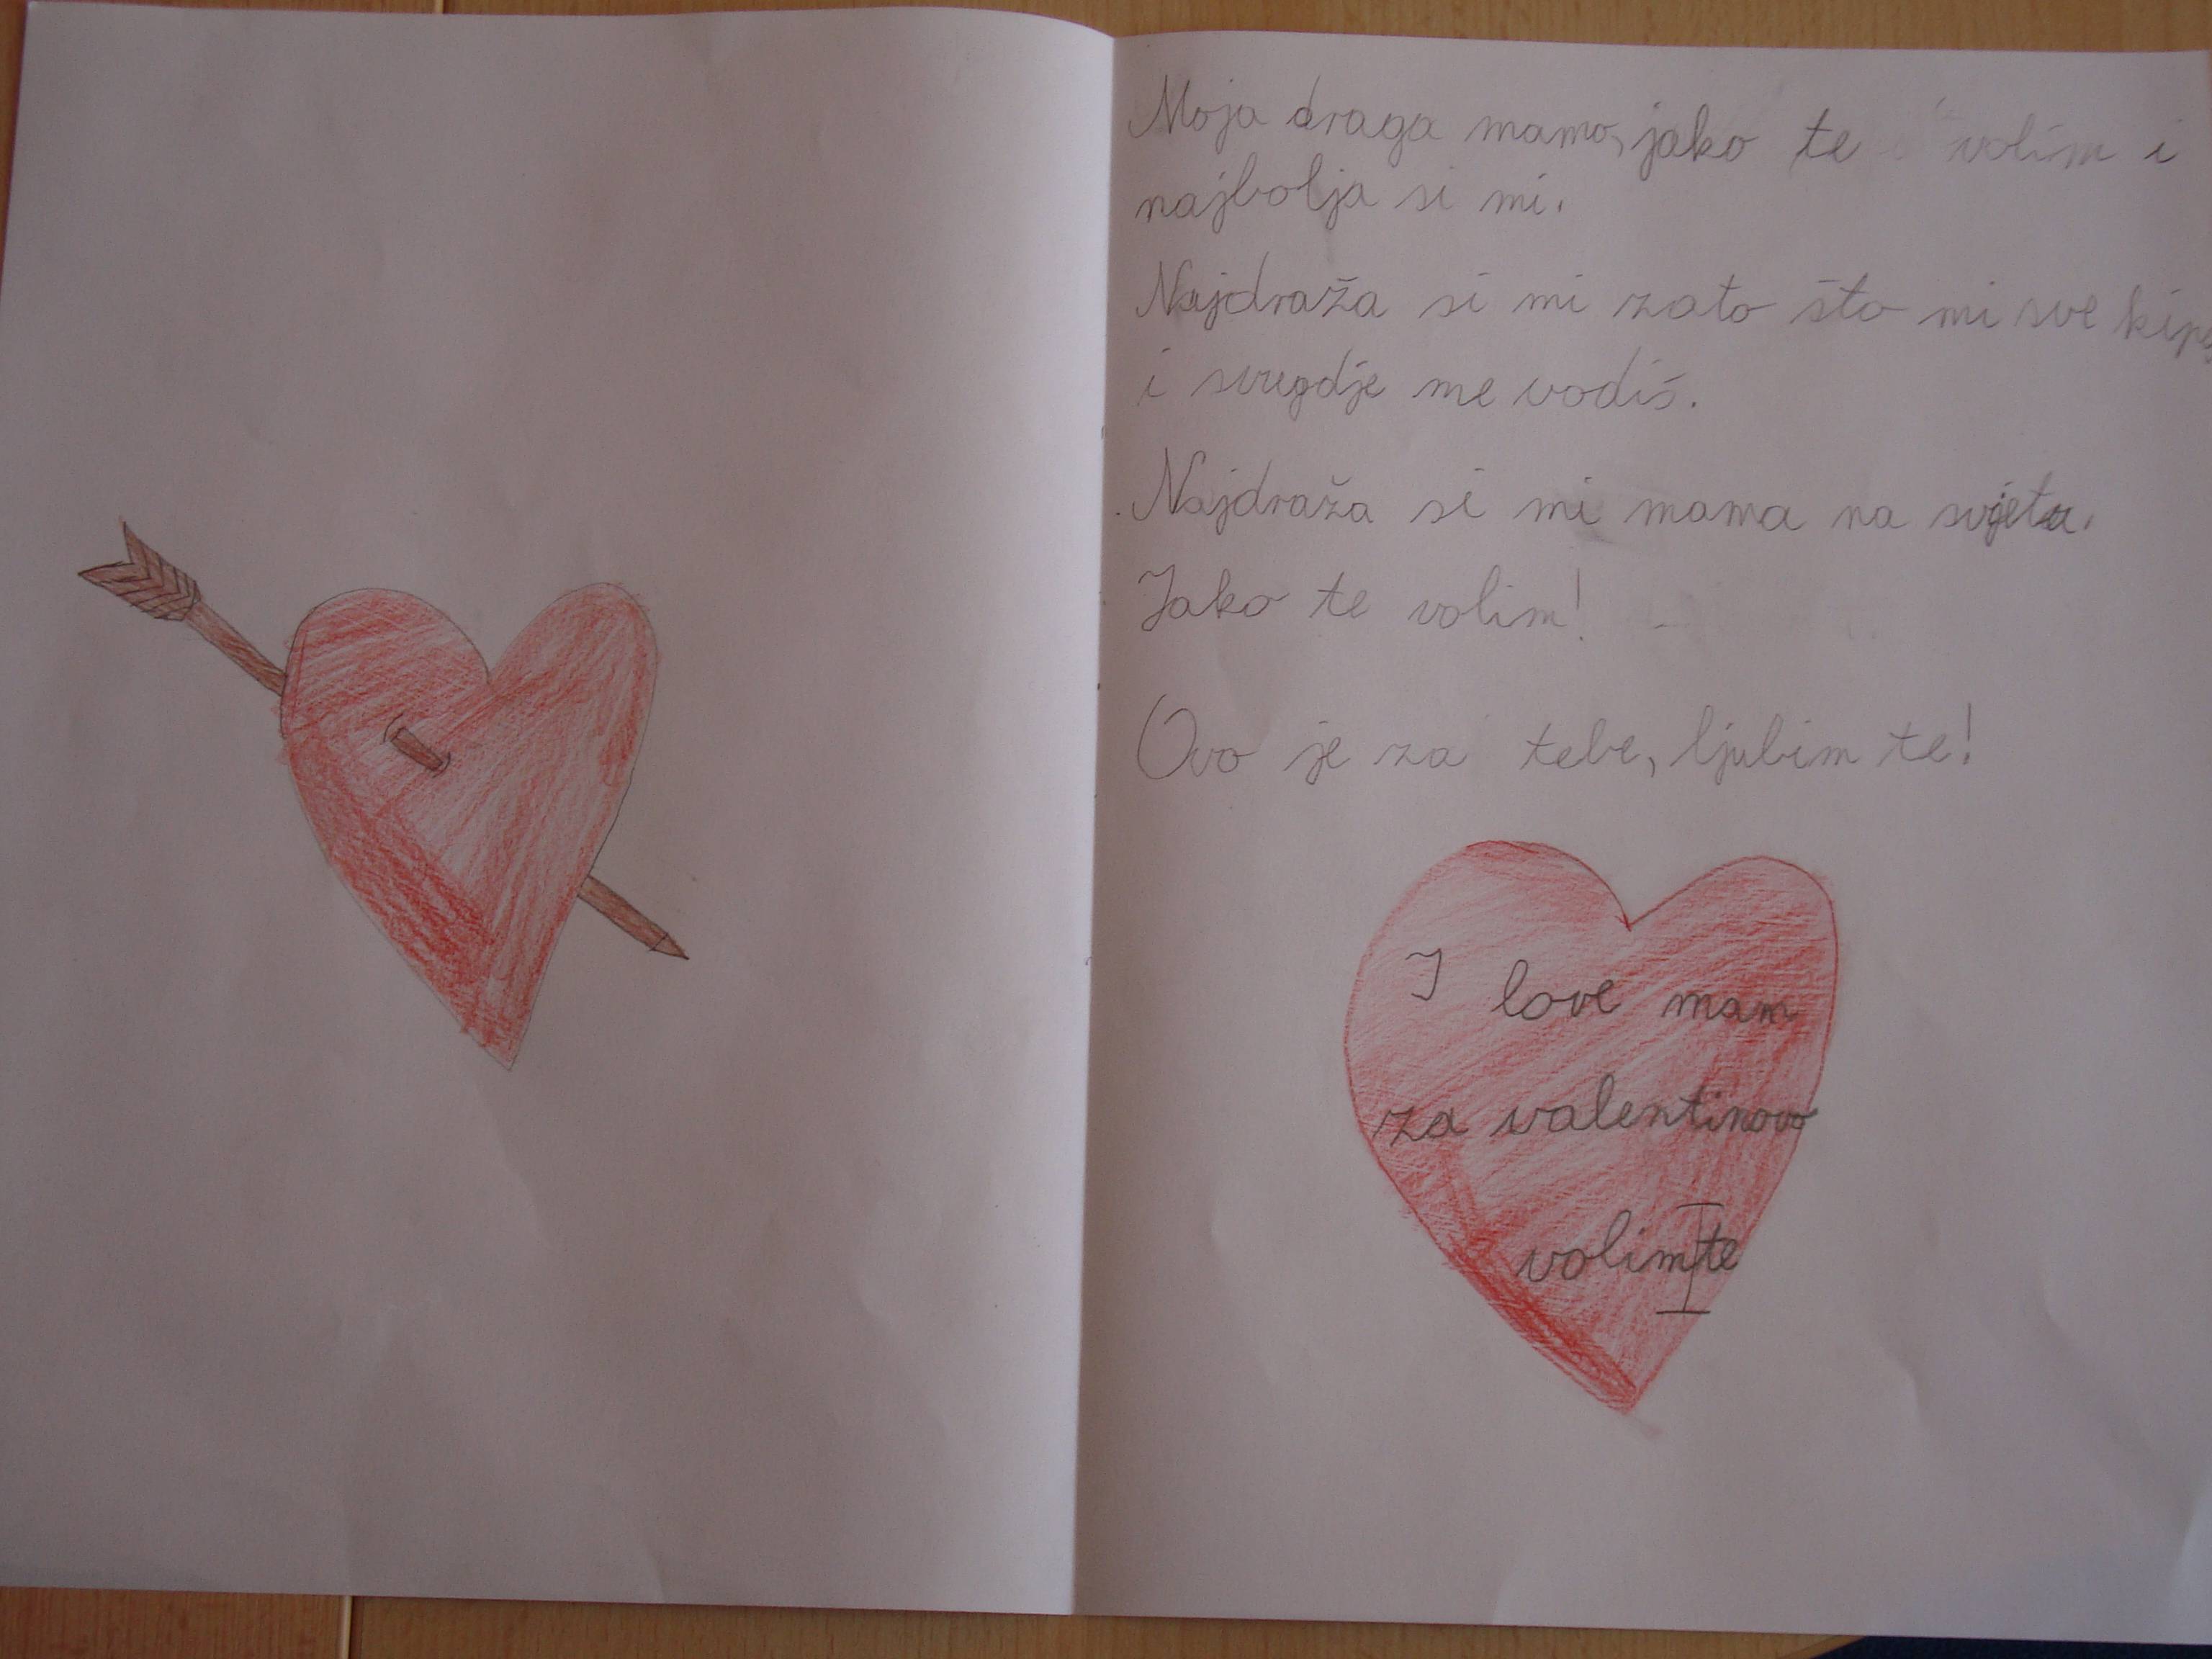 Moja draga mamo, jako te volim i
najbolja si mi.
Najdraža si mi zato što mi sve
i svugdje me vodiš.
Najdraža si mi mama na svjetu.
Jako te volim!
Ovo je za tebe, ljubim te!
I love mam
za valentinovo
volim te